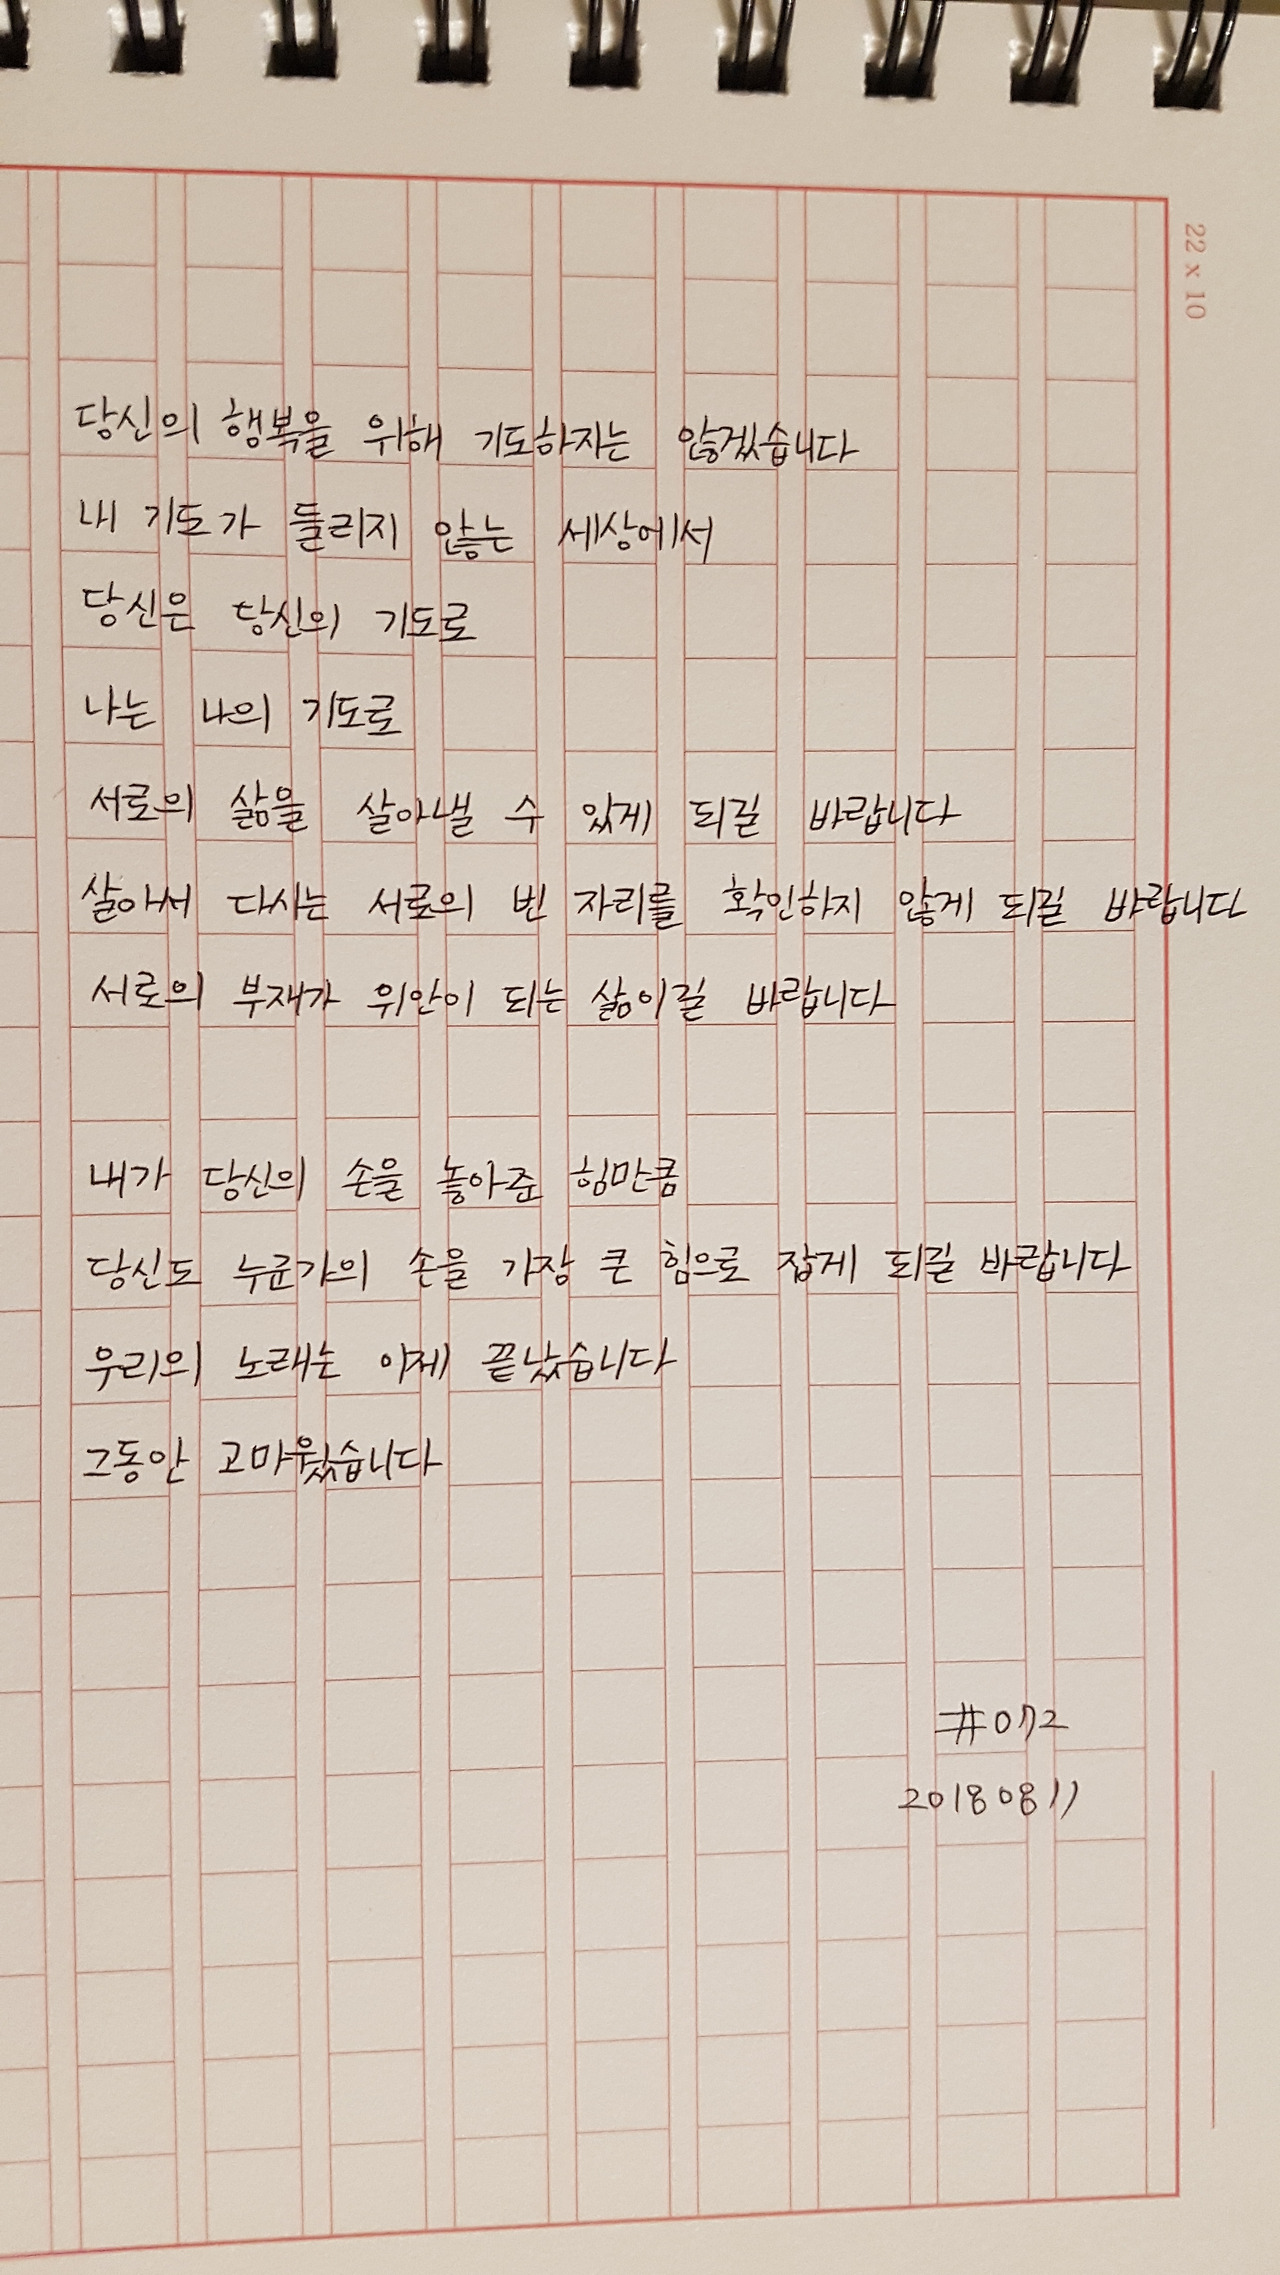 22 x 10
당신의 행복을 위해 기도하지는 않겠습니다
내 기도가 들리지 않는 세상에서
당신은 당신의 기도로
나는 나의 기도로
서로의 삶을 살아낼 수 있게 되길 바랍니다
살아서 다시는 서로의 빈 자리를 확인하지 않게 되길 바랍니다
서로의 부재가 위안이 되는 삶이길 바랍니다
내가 당신의 손을 놓아준 힘만큼
당신도 누군가의 손을 가장 큰 힘으로 잡게 되길 바랍니다
우리의 노래는 이제 끝났습니다
그동안 고마웠습니다
#072
20180811